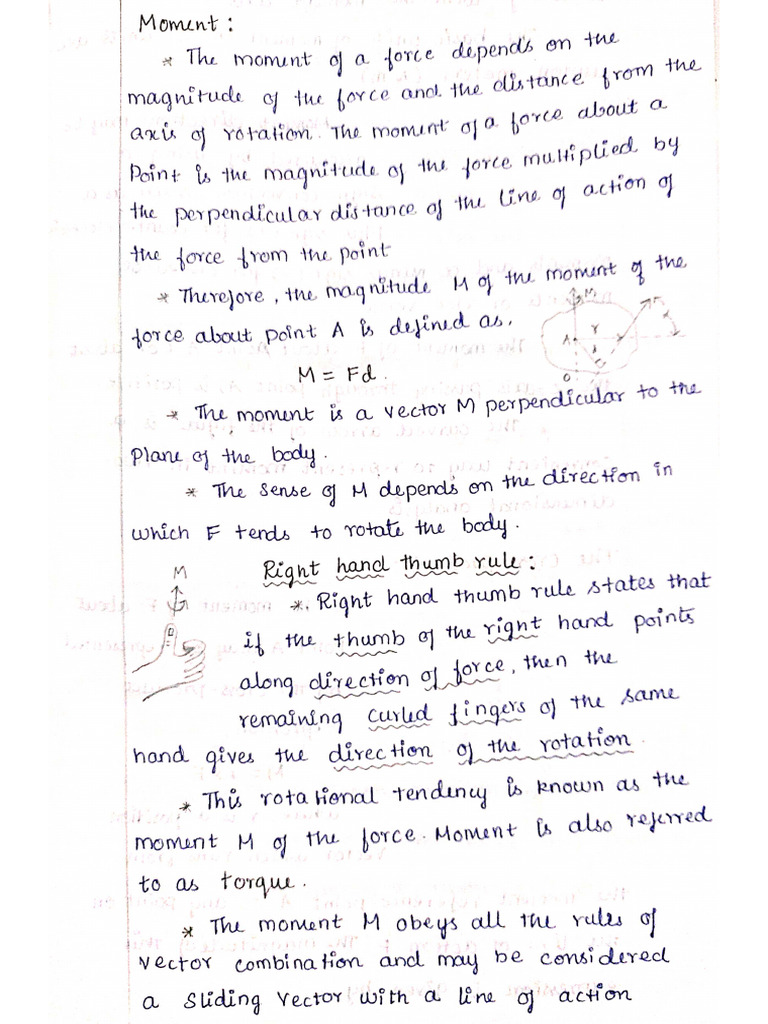 Moment :
* The moment of a force depends on the
magnitude of the force and the distance from the
axis of rotation. The moment of a force about a
Point is the magnitude of the force multiplied by
the perpendicular distance of the line of action of
the force from the point
* Therefore, the magnitude M of the moment of the
force about point A is defined as,
M = Fd.
M
A
r
d
O
* The moment is a vector M perpendicular to the
plane of the body.
* The sense of M depends on the direction in
which F tends to rotate the body.
Right hand thumb rule :
M
*. Right hand thumb rule states that
if the thumb of the right hand points
along direction of force, then the
remaining curled fingers of the same
hand gives the direction of the rotation.
* This rotational tendency is known as the
moment M of the force. Moment is also referred
to as torque.
* The moment M obeys all the rules of
vector combination and may be considered
a sliding vector with a line of action